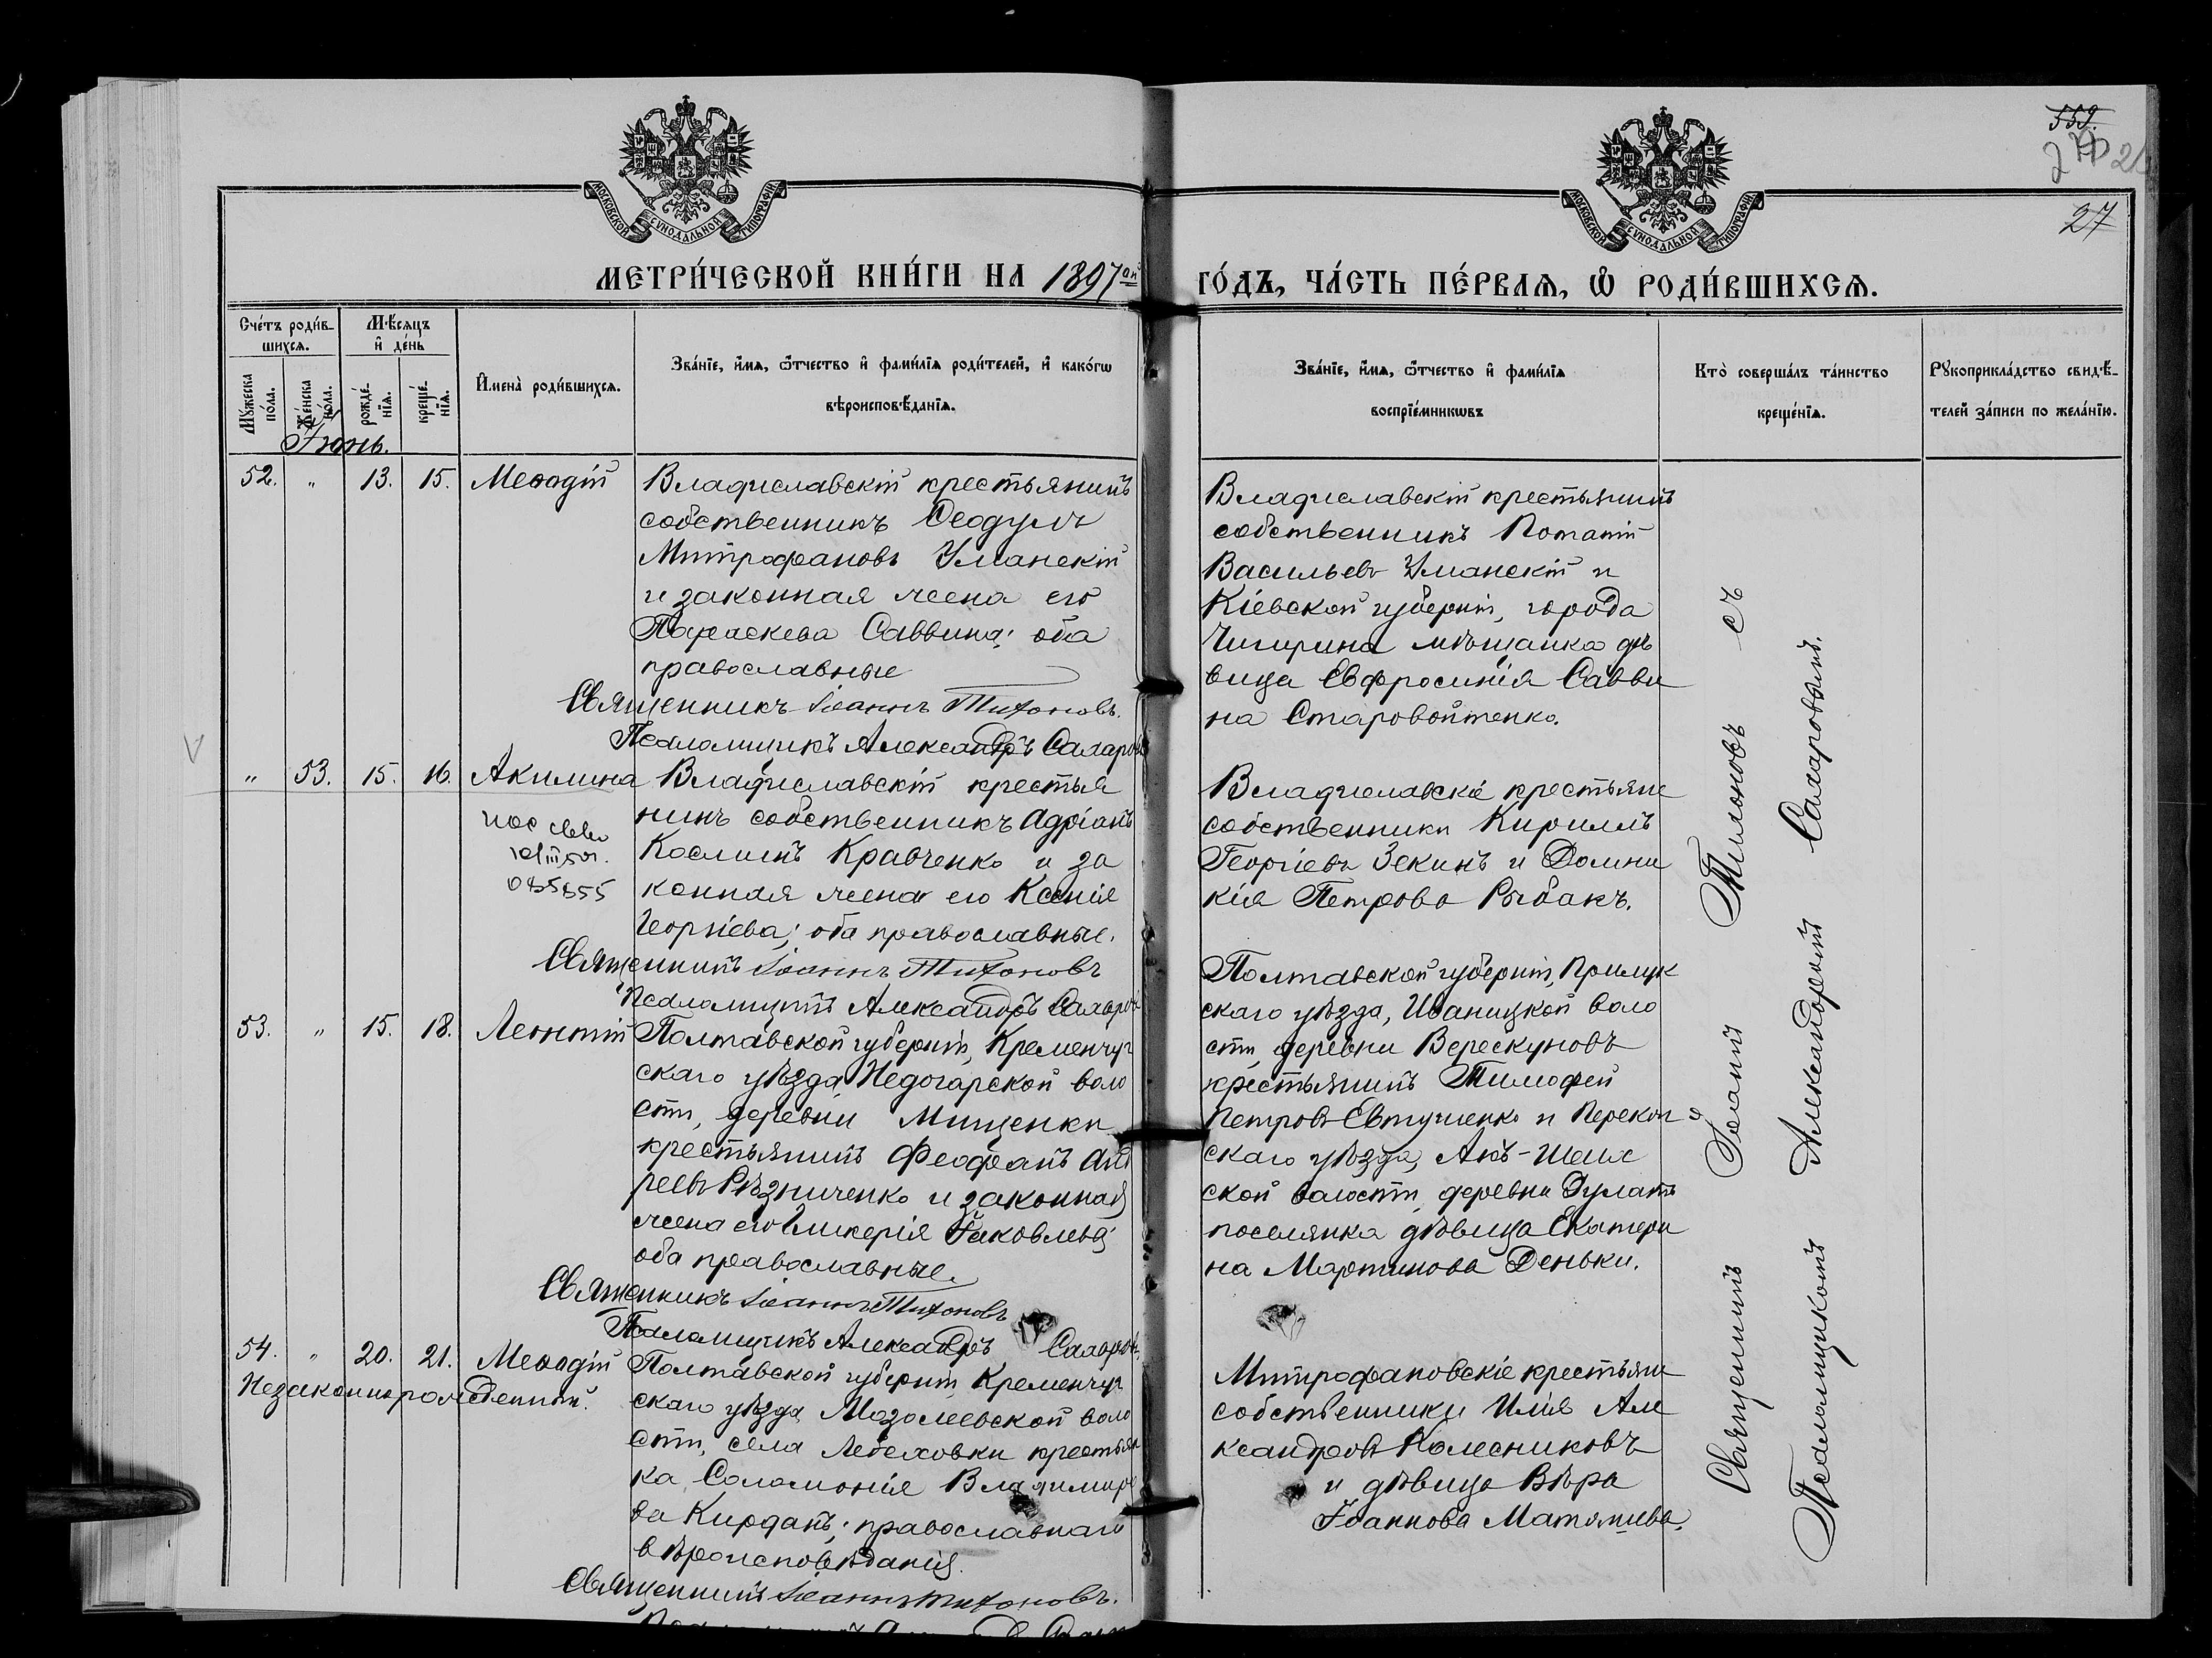 559.
27
МОСКОВСКОЙ СѴНОДАЛЬНОЙ ТИПОГРАФІИ
МОСКОВСКОЙ СѴНОДАЛЬНОЙ ТИПОГРАФІИ
МЕТРИ́ЧЕСКОЙ КНИ́ГИ НА 1897 ГО́ДЪ, ЧА́СТЬ ПЕ́РВАѦ, Ѡ҆ РОДИ́ВШИХСѦ.
Счє́тъ роди́в-
шихсѧ.
Мѣ́сѧцъ
и҆ де́нь
Мꙋ́жеска
по́ла.
Же́нска
по́ла.
рожде́-
нїѧ.
креще́-
нїѧ.
И҆мена̀ роди́вшихсѧ.
Зва́нїе, и҆́мѧ, ѻ҆́тчество и҆ фами́лїѧ роди́телей, и҆ како́гѡ
вѣроисповѣ́данїѧ.
Зва́нїе, и҆́мѧ, ѻ҆́тчество и҆ фами́лїѧ
воспрїе́мникѡвъ
Кто̀ соверша́лъ та́инство
креще́нїѧ.
Рꙋкоприкла́дство свидѣ́-
телей за́писи по жела́нїю.
Іюнь.
52. " 13. 15. Меѳодій
Владиславскій крестьянинъ
собственникъ Ѳеодулъ
Митрофановъ Уманскій
и законная жена его
Параскева Саввина; оба
православные
Священникъ Іоаннъ Тихоновъ.
Псаломщикъ Александръ Сахаровъ
Владиславскій крестьянинъ
собственникъ Потапій
Васильевъ Уманскій и
Кіевской губерніи, города
Чигирина мѣщанка дѣ
вица Евфросинія Савви
на Старовойтенко.
" 53. 15. 16. Акилина
085855
Владиславскій крестья
нинъ собственникъ Адріанъ
Косминъ Кравченко и за
конная жена его Ксенія
Георгіева; оба православные.
Священникъ Іоаннъ Тихоновъ
Псаломщикъ Александръ Сахаровъ
Владиславскіе крестьяне
собственники Кириллъ
Георгіевъ Зекинъ и Домни
кія Петрова Рыбакъ.
53. " 15. 18. Леонтій
Полтавской губерніи, Кременчуг
скаго уѣзда Недогарской воло
сти, деревни Мищенки
крестьянинъ Феофанъ Анд
реевъ Рѣзниченко и законная
жена его Гликерія Іаковлева
оба православные.
Священникъ Іоаннъ Тихоновъ
Псаломщикъ Александръ Сахаровъ.
Полтавской губерніи, Прилук
скаго уѣзда, Иваницкой воло
сти, деревни Верескуновъ
крестьянинъ Тимофей
Петровъ Евтушенко и Перекоп
скаго уѣзда, Акъ-Шеих
ской волости, деревни Дулатъ
поселянка дѣвица Екатери
на Мартинова Деньки.
54. " 20. 21. Меѳодій
Незаконнорожденный.
Полтавской губерніи Кременчуг
скаго уѣзда Мозолеевской воло
сти, села Лебеховки крестьян
ка Соломонія Владимиро
ва Кирданъ; православнаго
вѣроисповѣданія.
Священникъ Іоаннъ Тихоновъ.
Митрофановскіе крестьяне
собственники Илія Але
ксандровъ Колесниковъ
и дѣвица Вѣра
Іоаннова Матюшева.
Священникъ Іоаннъ Тихоновъ съ
Псаломщикомъ Александромъ Сахаровымъ.